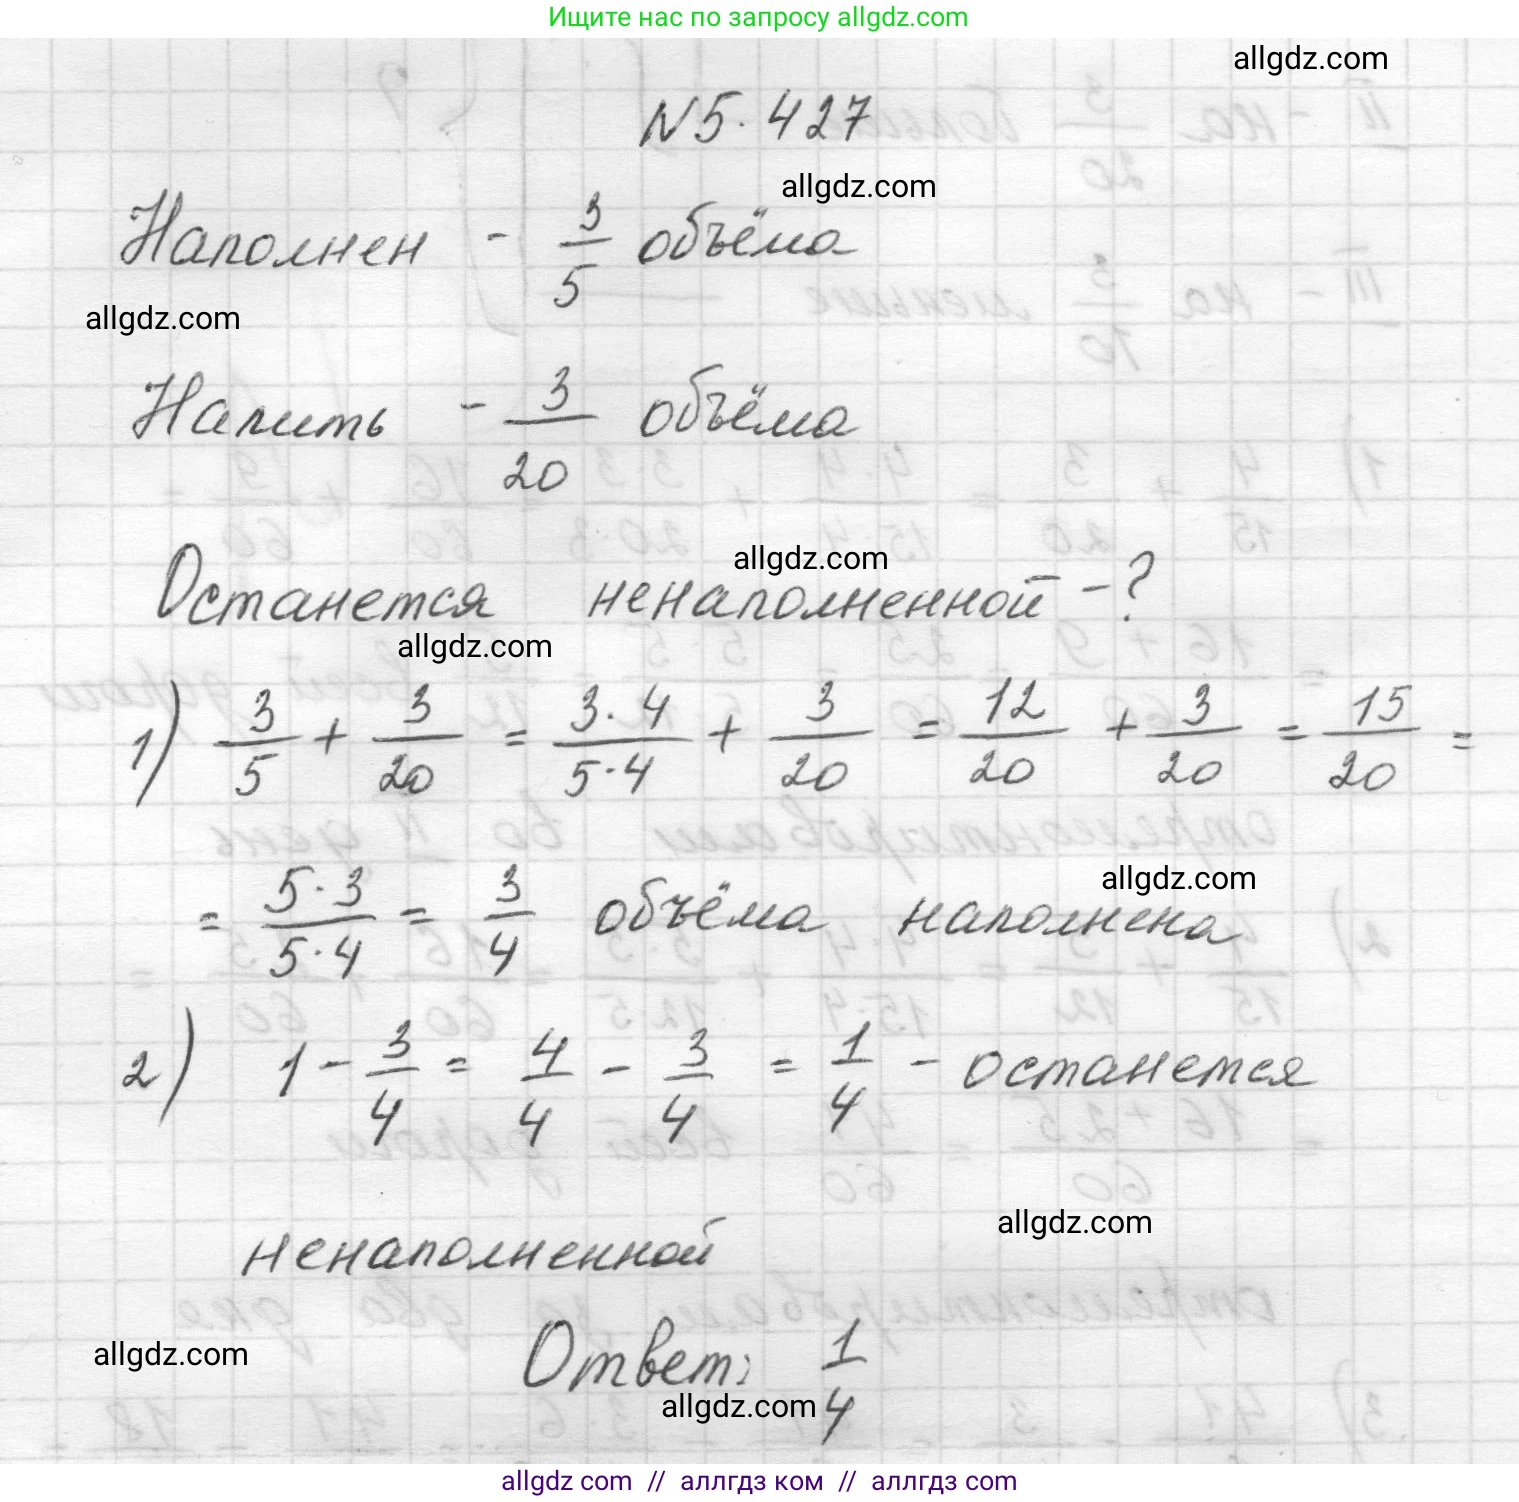 Ищите нас по запросу allgdz.com
allgdz.com
N 5.427
allgdz.com
Наполнен - 3/5 объёма
allgdz.com
Налить - 3/20 объёма
allgdz.com
Останется ненаполненной - ?
allgdz.com
1) 3/5 + 3/20 = 3·4/5·4 + 3/20 = 12/20 + 3/20 = 15/20 =
allgdz.com
= 5·3/5·4 = 3/4 объёма наполнена
2) 1 - 3/4 = 4/4 - 3/4 = 1/4 - останется
allgdz.com
ненаполненной
allgdz.com
Ответ: 1/4
allgdz.com
allgdz com // аллгдз ком // аллгдз com